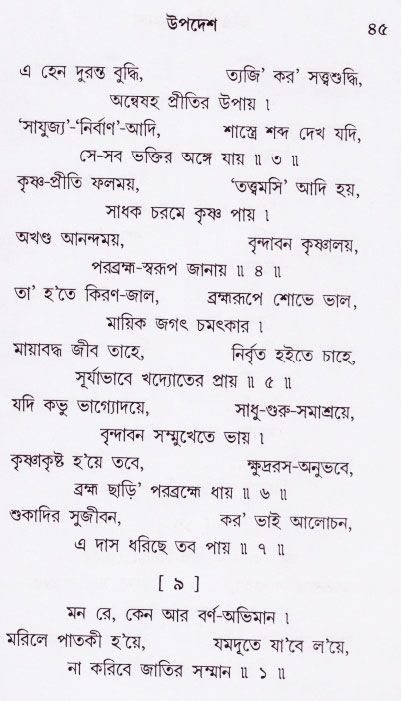 উপদেশ ৪৫
এ হেন দুরন্ত বুদ্ধি, ত্যজি' কর' সত্ত্বশুদ্ধি,
অন্বেষহ প্রীতির উপায় ।
‘সাযুজ্য’-‘নির্বাণ’-আদি, শাস্ত্রে শব্দ দেখ যদি,
সে-সব ভক্তির অঙ্গে যায় ॥ ৩ ॥
কৃষ্ণ-প্রীতি ফলময়, ‘তত্ত্বমসি’ আদি হয়,
সাধক চরমে কৃষ্ণ পায় ।
অখণ্ড আনন্দময়, বৃন্দাবন কৃষ্ণালয়,
পরব্রহ্ম-স্বরূপ জানায় ॥ ৪ ॥
তা' হ'তে কিরণ-জাল, ব্রহ্মরূপে শোভে ভাল,
মায়িক জগৎ চমৎকার ।
মায়াবদ্ধ জীব তাহে, নির্বৃত হইতে চাহে,
সূর্যাভাবে খদ্যোতের প্রায় ॥ ৫ ॥
যদি কভু ভাগ্যোদয়ে, সাধু-গুরু-সমাশ্রয়ে,
বৃন্দাবন সম্মুখেতে ভায় ।
কৃষ্ণাকৃষ্ট হ'য়ে তবে, ক্ষুদ্ররস-অনুভবে,
ব্রহ্ম ছাড়ি' পরব্রহ্মে ধায় ॥ ৬ ॥
শুকাদির সুজীবন, কর' ভাই আলোচন,
এ দাস ধরিছে তব পায় ॥ ৭ ॥
[ ৯ ]
মন রে, কেন আর বর্ণ-অভিমান ।
মরিলে পাতকী হ'য়ে, যমদূতে যা'বে ল'য়ে,
না করিবে জাতির সম্মান ॥ ১ ॥